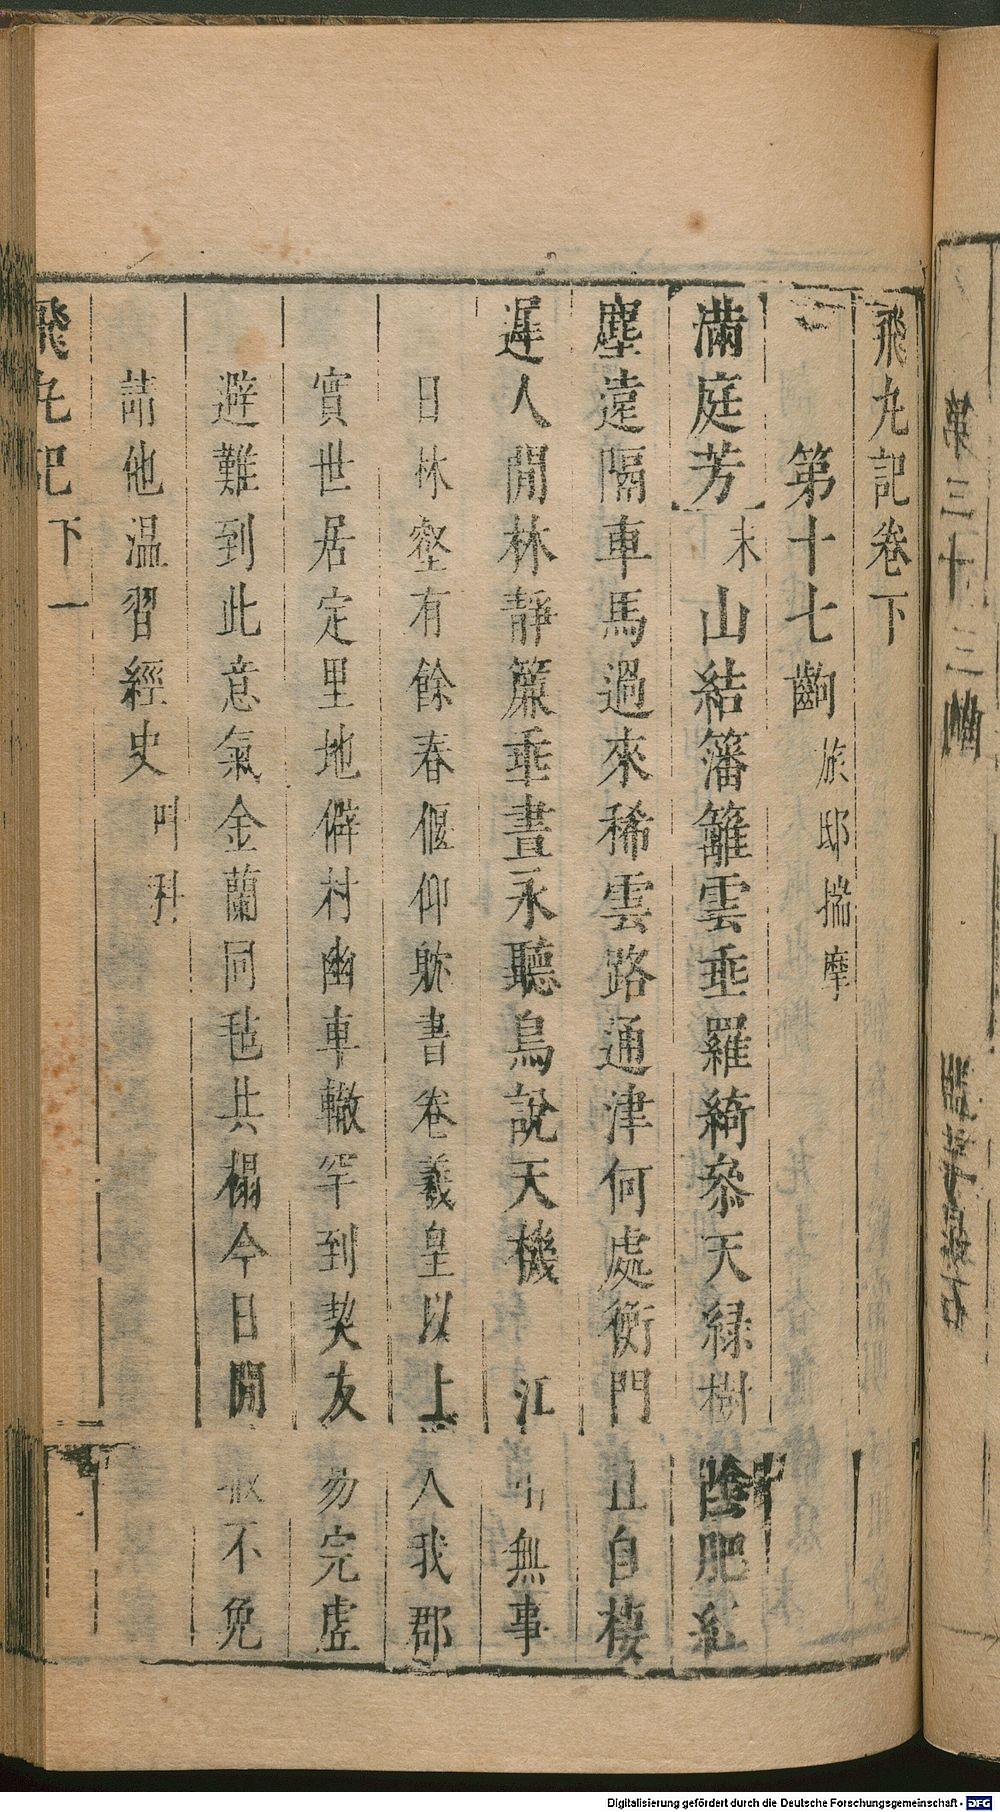 飛丸記卷下
第十七齣 旅邸揣摩
滿庭芳 末 山結籓籬雲垂羅綺叅天緑樹陰肥紅
塵遠隔車馬過來稀雲路通津何處衡門且自棲
遲人閒林靜簾垂晝永聽鳥說天機 江 無事
日林壑有餘春偃仰躭書卷羲皇以上人我郡
實世居定里地僻村幽車轍罕到契友易完虛
避難到此意氣金蘭同毡共榻今日閒 不免
請他温習經史 叫科
飛丸記 下 一
第三十三齣
Digitalisierung gefördert durch die Deutsche Forschungsgemeinschaft - DFG